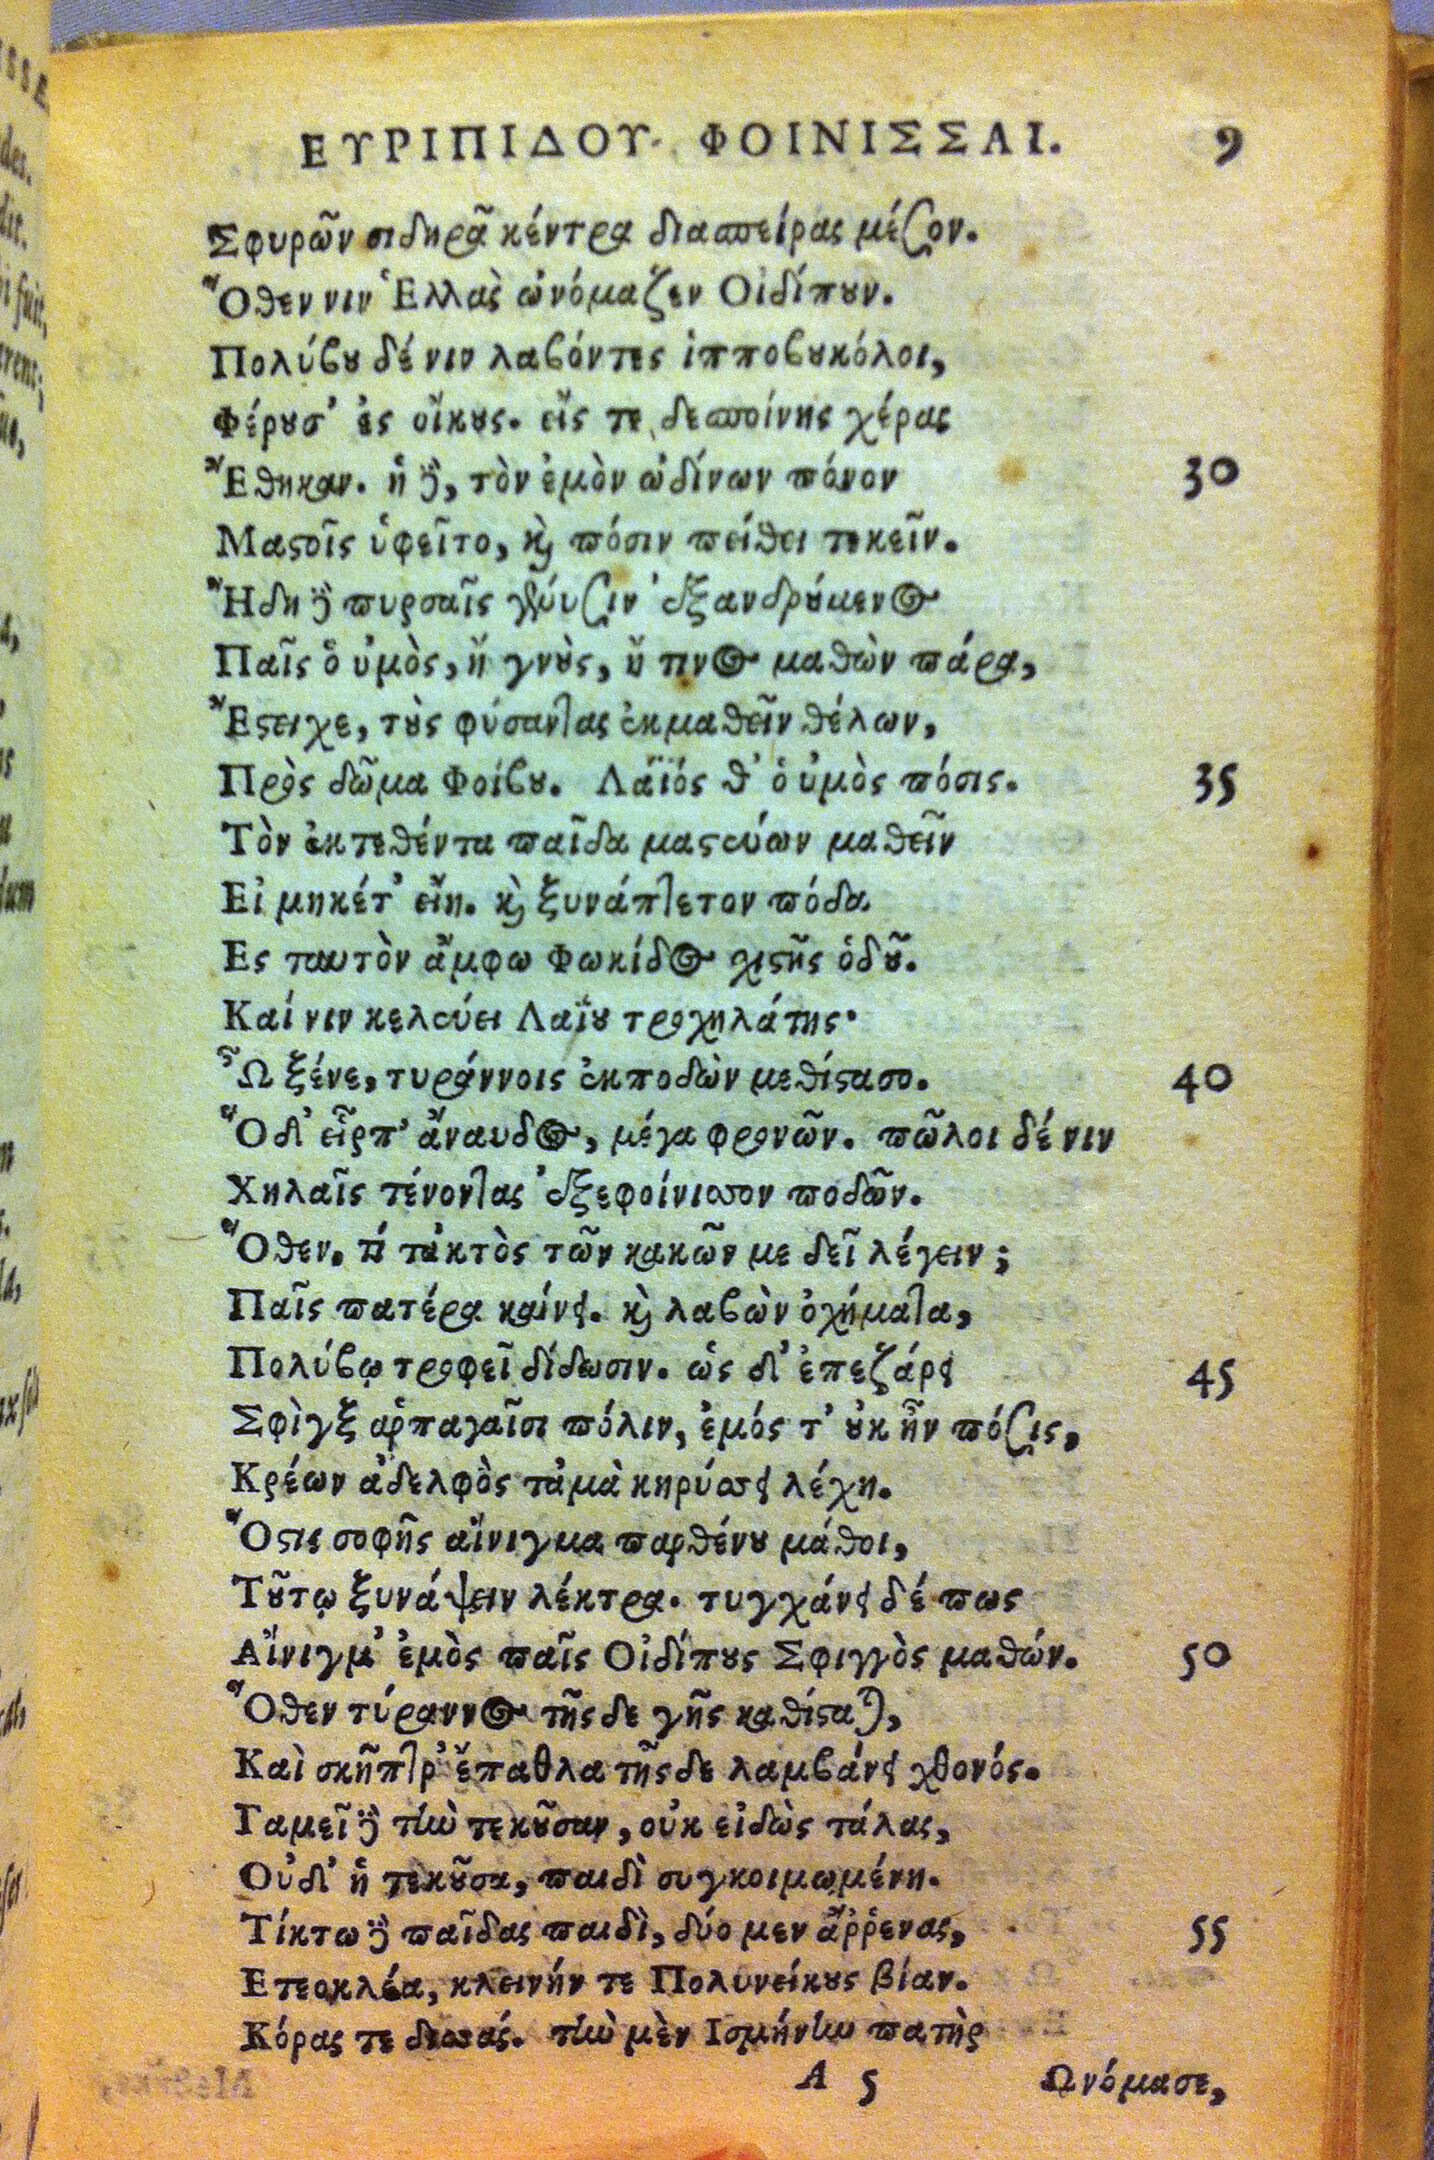 ΕΥΡΙΠΙΔΟΥ ΦΟΙΝΙΣΣΑΙ. 9
Σφυρῶν σιδηρᾶ κέντρα διαπείρας μέσον.
Ὅθεν νιν Ἑλλὰς ὠνόμαζεν Οἰδίπουν.
Πολύβου δέ νιν λαβόντες ἱπποβουκόλοι,
Φέρουσ' ἐς οἴκους. εἴς τε δεσποίνης χέρας
Ἔθηκαν. ἡ δὲ, τὸν ἐμὸν ὠδίνων πόνον 30
Μαστοῖς ὑφεῖτο, καὶ πόσιν πείθει τεκεῖν.
Ἤδη δὲ πυρσαῖς γένυσιν ἐξανδρούμενος
Παῖς ὁ ὑμὸς, ἢ γνοὺς, ἤ τινος μαθὼν πάρα,
Ἔστειχε, τοὺς φύσαντας ἐκμαθεῖν θέλων,
Πρὸς δῶμα Φοίβου. Λάϊός θ' ὁ ὑμὸς πόσις. 35
Τὸν ἐκτεθέντα παῖδα μαστεύων μαθεῖν
Εἰ μηκέτ' εἴη. καὶ ξυνάπτετον πόδα
Ες ταυτὸν ἄμφω Φωκίδος χιστῆς ὁδοῦ.
Καί νιν κελεύει Λαΐου τροχηλάτης·
Ὦ ξένε, τυράννοις ἐκποδὼν μεθίστασο. 40
Ὅδ' εἷρπ' ἄναυδος, μέγα φρονῶν. πῶλοι δέ νιν
Χηλαῖς τένοντας ἐξεφοίνισσον ποδῶν.
Ὅθεν. τί τἀκτὸς τῶν κακῶν με δεῖ λέγειν;
Παῖς πατέρα καίνει. καὶ λαβὼν ὀχήματα,
Πολύβῳ τροφεῖ δίδωσιν. ὡς δ' ἐπεζάρει 45
Σφὶγξ ἁρπαγαῖσι πόλιν, ἐμός τ' οὐκ ἦν πόσις,
Κρέων ἀδελφὸς τἀμὰ κηρύσσει λέχη.
Ὅστις σοφῆς αἴνιγμα παρθένου μάθοι,
Τούτῳ ξυνάψειν λέκτρα. τυγχάνει δέ πως
Αἴνιγμ' ἐμὸς παῖς Οἰδίπους Σφιγγὸς μαθών. 50
Ὅθεν τύραννος τῆς δε γῆς καθίσταται,
Καὶ σκῆπτρ' ἔπαθλα τῆς δε λαμβάνει χθονός.
Γαμεῖ δὲ τὴν τεκοῦσαν, οὐκ εἰδὼς τάλας,
Οὐδ' ἡ τεκοῦσα, παιδὶ συγκοιμωμένη.
Τίκτω δὲ παῖδας παιδὶ, δύο μεν ἄῤῥενας, 55
Ετεοκλέα, κλεινήν τε Πολυνείκους βίαν.
Κόρας τε δισσάς. τὴν μὲν Ισμήνην πατὴρ
A 5 Ωνόμασε,